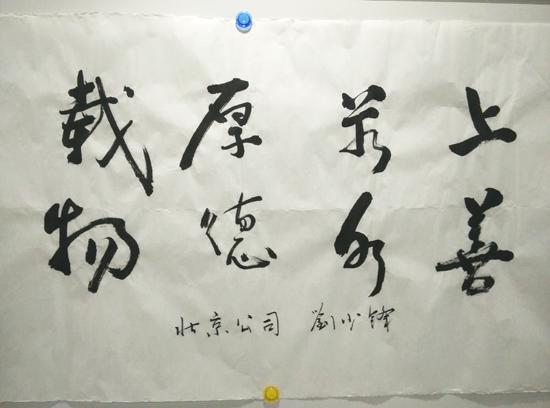 上善
若水
厚德
载物
北京公司 劉少鋒